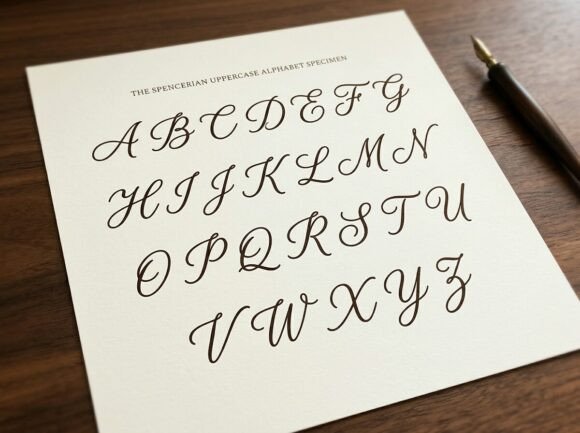 THE SPENCERIAN UPPERCASE ALPHABET SPECIMEN
A B C D E F G
H I J K L M N
O P Q R S T U
V W X Y Z